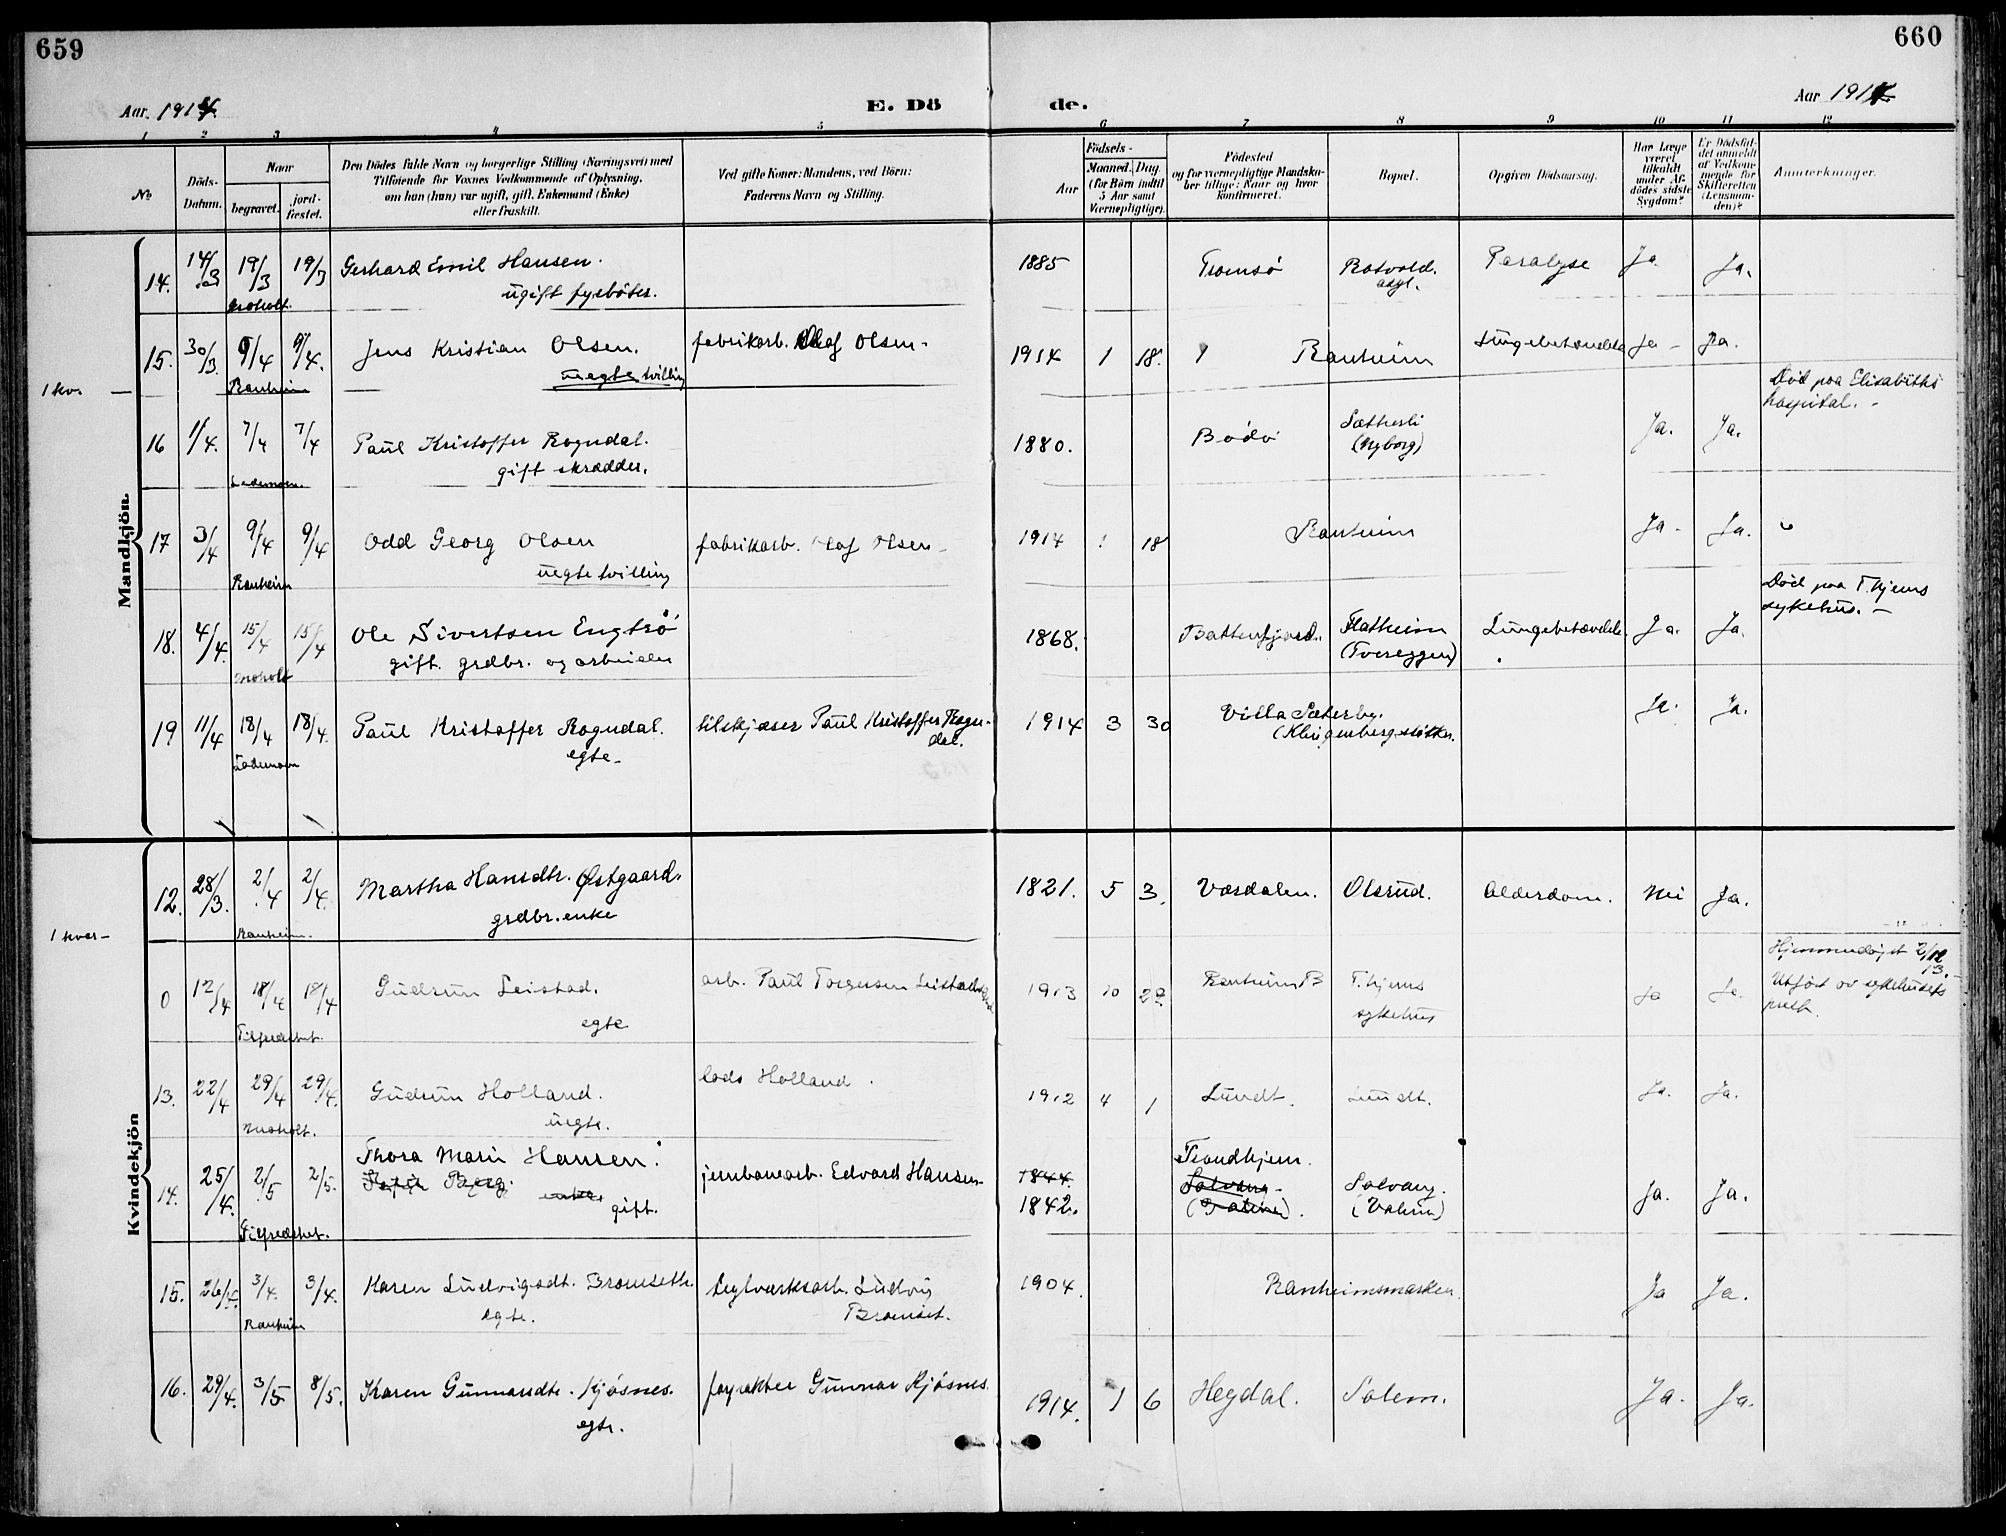 659
660
Aar. 1914.
E. Dö
de.
Aar 1914
1 2 3 4 5
6 7 8 9 10 11 12
No
Döds-Datum.
Naar
begravet.
jord-fæstet.
Den Dödes fulde Navn og borgerlige Stilling (Næringsvei) med
Tilföiende for Voxnes Vedkommende af Oplysning,
om han (hun) var ugift, gift, Enkemand (Enke)
eller fraskilt.
Ved gifte Koner: Mandens, ved Börn:
Faderens Navn og Stilling.
Födsels-
Aar
Maaned. Dag.
(for Börn indtil
5 Aar samt
Værnepligtige).
Födested
og for værnepligtige Mandska-
ber tillige: Naar og hvor
konfirmeret.
Bopæl.
Opgiven Dödsaarsag.
Har Læge
været
tilkaldt
under Af-
dödes sidste
Sygdom?
Er Dödsfal-
det anmeldt
af Vedkom-
mende for
Skifteretten
(Lensman-
den)?
Anmerkninger.
Mandkjön.
14. 14/3 19/3 19/3 Gerhard Emil Hansen. 1885 Tromsø Rotvold Paralyse Ja Ja.
Moholt. ugift fyrbøter. asyl.
15. 30/3 9/4 9/4. Jens Kristian Olsen. fabrikarb. Olaf Olsen- 1914 1 18. Ranheim Lungebetændelse Ja - Ja.
1 kv. — Ranheim uegte tvilling
Død paa Elisabeths
hospital. -
16 1/4. 7/4 7/4 Paul Kristoffer Rogndal. 1880. Bodø Sætherli Ja. Ja.
Lademoen. gift skrædder. (Nyborg)
17 3/4 9/4 9/4 Odd Georg Olsen fabrikarb. Olaf Olsen- 1914 1 18 Ranheim Ja - Ja.
Ranheim uegte tvilling
Død paa T.hjems
sykehus. -
18. 4/4. 15/4 15/4 Ole Sivertsen Engtrø 1868. Battenfjord. Flatheim Lungebetændelse. Ja. Ja.
Moholt gift. grdbr. og arbeider (Tvereggen)
19 11/4 18/4 18/4. Paul Kristoffer Rogndal. tilskjærer Paul Kristoffer Rogn-dal. 1914 3 30 Villa Sæterby. Ja. Ja.
Lademoen egte- (Klingenberg støtter.
Kvindekjön
12. 28/3. 2/4 2/4. Martha Hansdtr. Østgaard. 1821. 5 3. Værdalen. Olsrud. Alderdom. Nei Ja.
1 kvar- Ranheim. grdbr. enke
Hjemmedøpt 2/12 13.
0 12/4 18/4 18/4 Gudrun Leistad. arb. Paul Torgersen Leistad 1913 10 22 Ranheim B T.hjems Ja Ja. Utført av sykehusets
Tilfredshet. egte sykehus prest.
13. 22/4 29/4 29/4. Gudrun Holland. lods Holland. 1912 4 1 Lundt. Lundt. Ja. Ja.
Moholt. uegte.
Thora Marie Hansen. Trondhjem.
14. 25/4. 2/5 2/5. Berg. enke jernbanearb. Edvard Hansen 1844. Solvang- Solvang. Ja. Ja.
Tilfredshet. gift. 1842. (Valerin)
15. 26/4. 3/4. 3/4. Karen Ludvigsdt. Bromseth. teglverksarb. Ludvig 1904. Ranheimsmarken. Ja Ja.
Ranheim egte. Bromset.
16. 29/4. 3/5 8/5. Karen Gunnarsdtr. Kjøsnes. forpakter Gunnar Kjøsnes. 1914. 1 6 Hegdal. Solem. Ja. Ja.
egte.